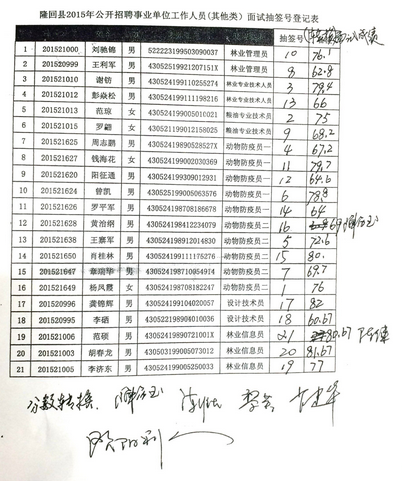 隆回县2015年公开招聘事业单位工作人员(其他类）面试抽签号登记表
抽签号
1 201521000 刘驰锦 男 522223199503090037 林业管理员 10 76.1
2 201520999 王利军 男 43052519921207151X 林业管理员 8 62.8
3 201521010 谢钫 男 430524199110255274 林业专业技术人员 3 79.4
4 201521012 彭焱松 男 430524199111198216 林业专业技术人员 13 66
5 201521013 范琼 女 430524199005010021 粮油专业技术员 2 75
6 201521015 罗翩 女 430521199012158025 粮油专业技术员 9 68.2
7 201521625 周志鹏 男 43052419890528527X 动物防疫员一 4 67.2
8 201521627 钱海花 女 430524199002030369 动物防疫员一 11 79.7
9 201521620 阳征通 男 430524199309012931 动物防疫员一 12 64.6
10 201521624 曾凯 男 430525199005063576 动物防疫员一 6 78.8
11 201521626 罗平军 男 430524198708186678 动物防疫员一 14 64
12 201521629 黄治纲 男 430524198412234079 动物防疫员二 16 69
13 201521638 王寨军 男 430524198912014830 动物防疫员二 5 72.6
14 201521650 肖桂林 男 430524199111175276 动物防疫员二 15 80.
15 201521647 章瑞华 男 430524198710954914 动物防疫员二 7 69.7
16 201521649 杨凤霞 女 430524198708182247 动物防疫员二 1 76
17 201520996 龚锦辉 男 430524199104020057 设计技术员 17 82
18 201520995 李硒 男 430522198904010036 设计技术员 18 60.67
19 201521006 范硕 男 43052419890721001X 林业信息员 21 80.67
20 201521003 胡春龙 男 430503199005073012 林业信息员 20 81.67
21 201521005 李济东 男 430524199005250033 林业信息员 19 77
分数转换